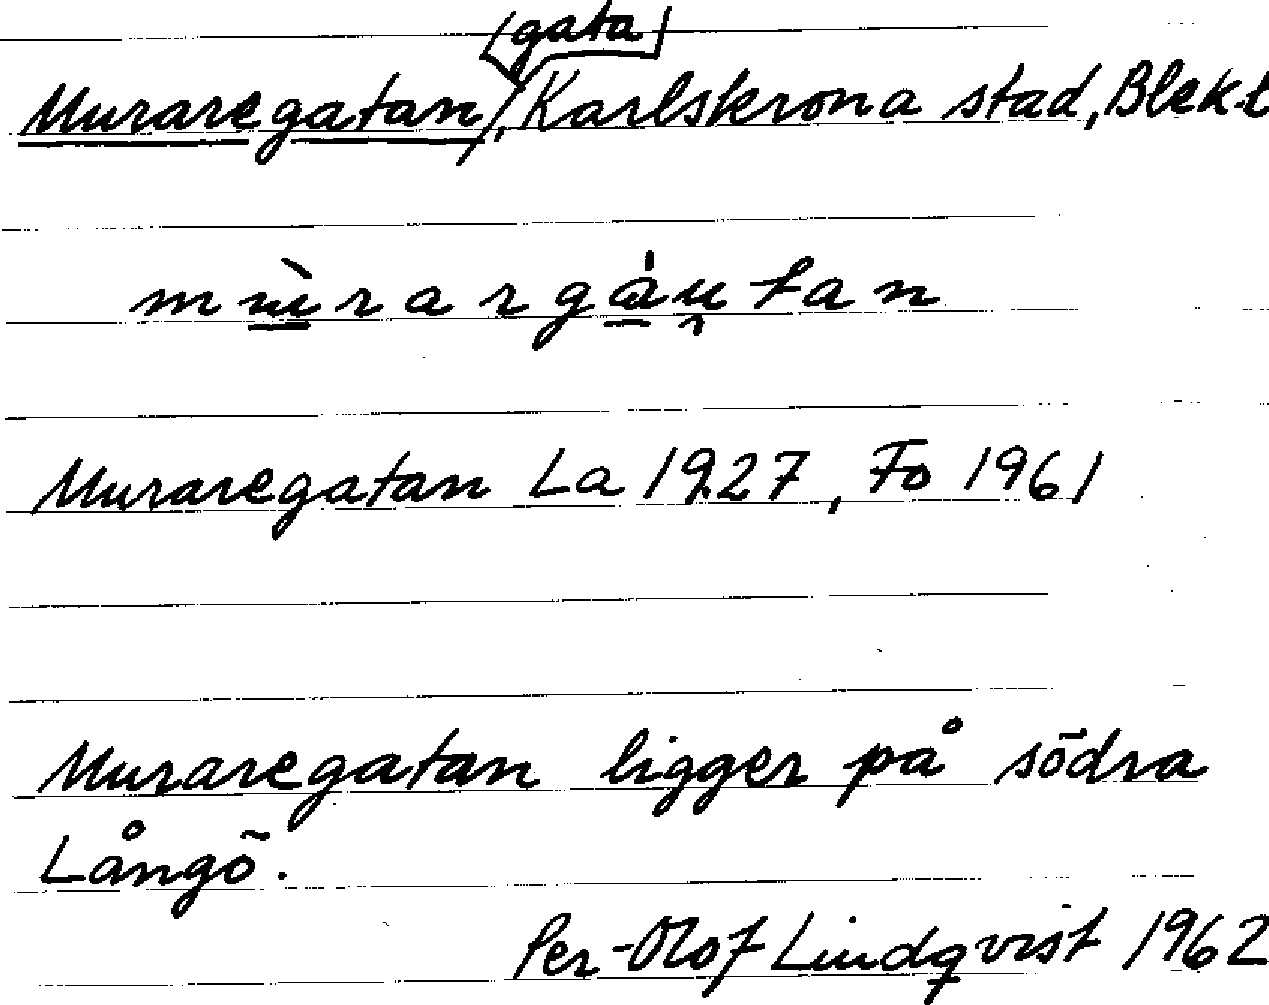 [gata]
Muraregatan, Karlskrona stad, Blek.
Muraregatan La 1927, Fo 1961
Muraregatan ligger på södra
Långö.
Per-Olof Lindqvist 1962